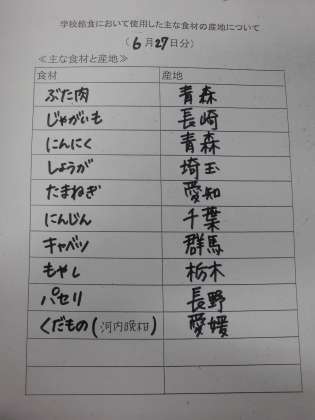 学校給食において使用した主な食材の産地について
(6月27日分)
≪主な食材と産地≫
食材 産地
ぶた肉 青森
じゃがいも 長崎
にんにく 青森
しょうが 埼玉
たまねぎ 愛知
にんじん 千葉
キャベツ 群馬
もやし 栃木
パセリ 長野
くだもの(河内晩柑) 愛媛